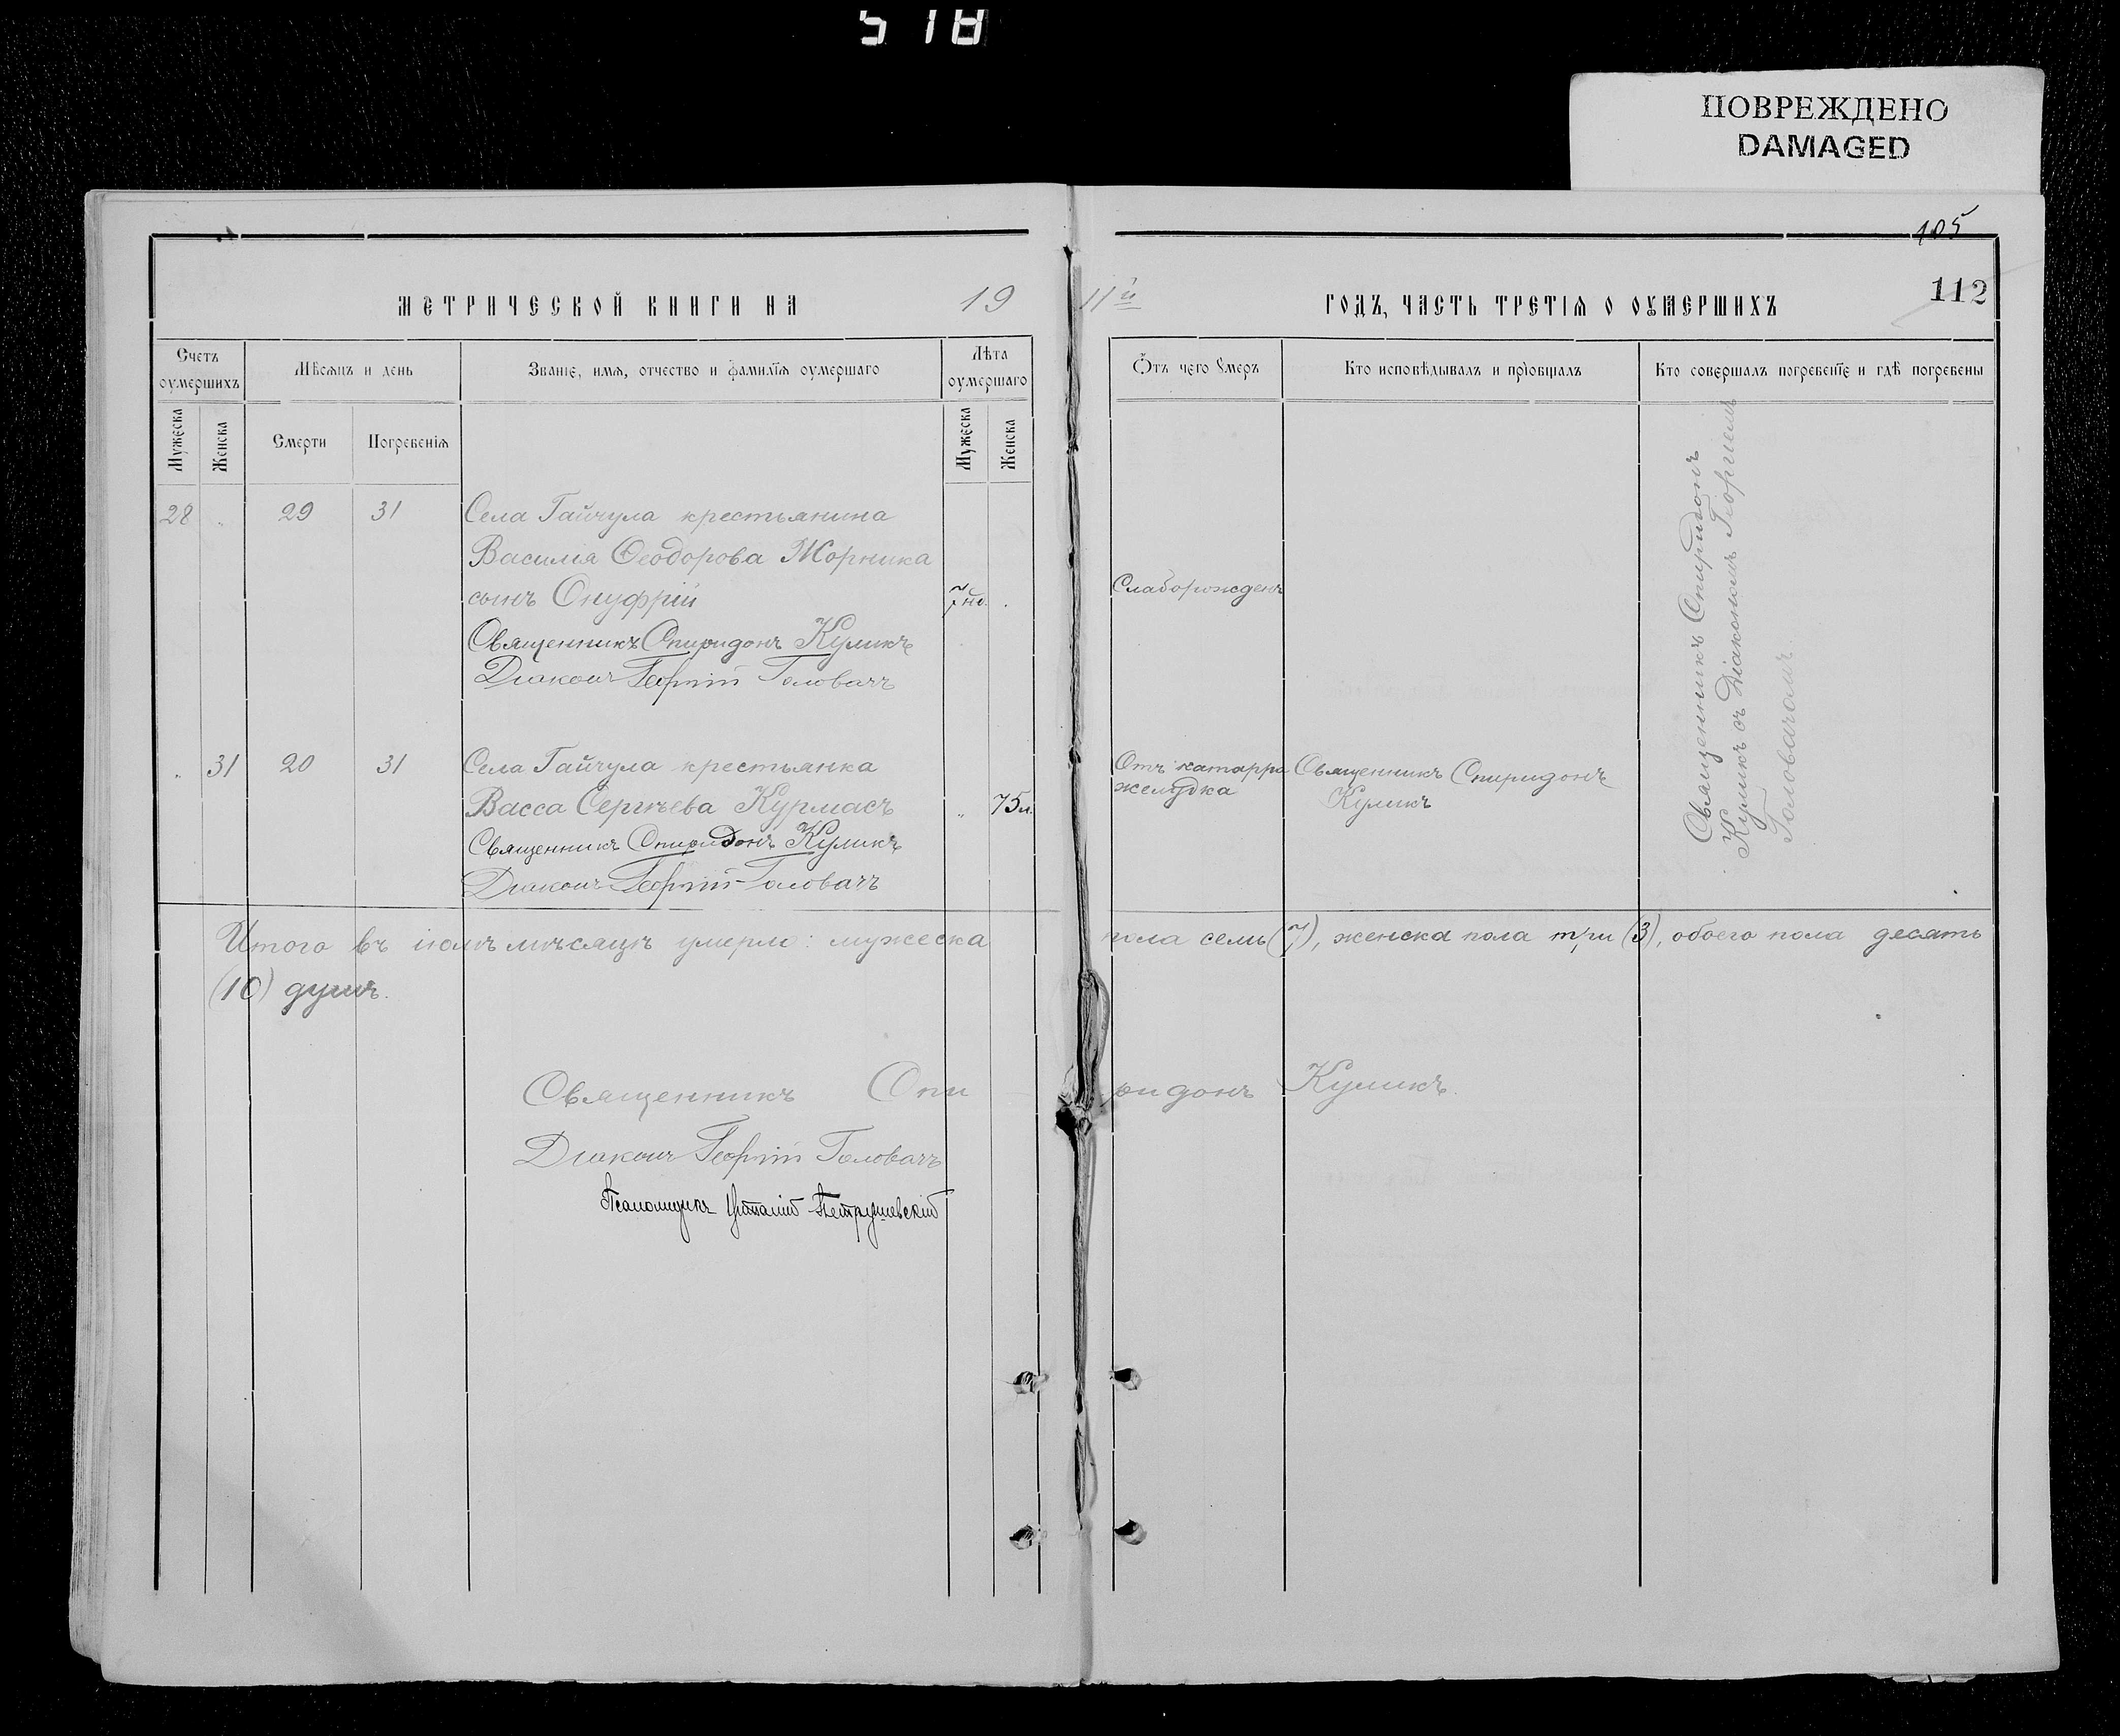 518
ПОВРЕЖДЕНО
DAMAGED
105
112
МЕТРИЧЕСКОЙ КНИГИ НА 19 11й ГОДЪ, ЧАСТЬ ТРЕТІЯ О ОУМЕРШИХЪ
Счетъ оумершихъ
Мѣсяцъ и день
Званіе, имя, отчество и фамилія оумершаго
Лѣта оумершаго
Отъ чего умеръ
Кто исповѣдывалъ и пріобщалъ
Кто совершалъ погребеніе и гдѣ погребены
Мужеска
Женска
Смерти
Погребенія
Мужеска
Женска
28 „ 29 31 Села Гайчула крестьянина
Василія Ѳеодорова Жорника
сынъ Онуфрій 7 нд. . Слаборожденъ
Священникъ Спиридонъ Куликъ
Діаконъ Георгій Головачъ
„ 31 20 31 Села Гайчула крестьянка
Васса Сергѣева Курмасъ „ 75 л.
Священникъ Спиридонъ Куликъ
Діаконъ Георгій Головачъ
Отъ катарра
желудка
Священникъ Спиридонъ
Куликъ
Священникъ Спиридонъ
Куликъ съ Діакономъ Георгіемъ
Головачомъ.
Итого въ іюлѣ мѣсяцѣ умерло: мужеска пола семь (7), женска пола три (3), обоего пола десять
(10) душъ.
Священникъ Спиридонъ Куликъ.
Діаконъ Георгій Головачъ
Псаломщикъ Петрушевскій